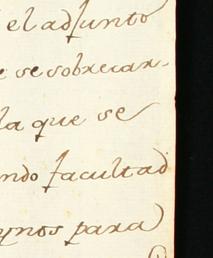 el adjunto
e se sobrecar-
la que se
ndo facultad
mos para